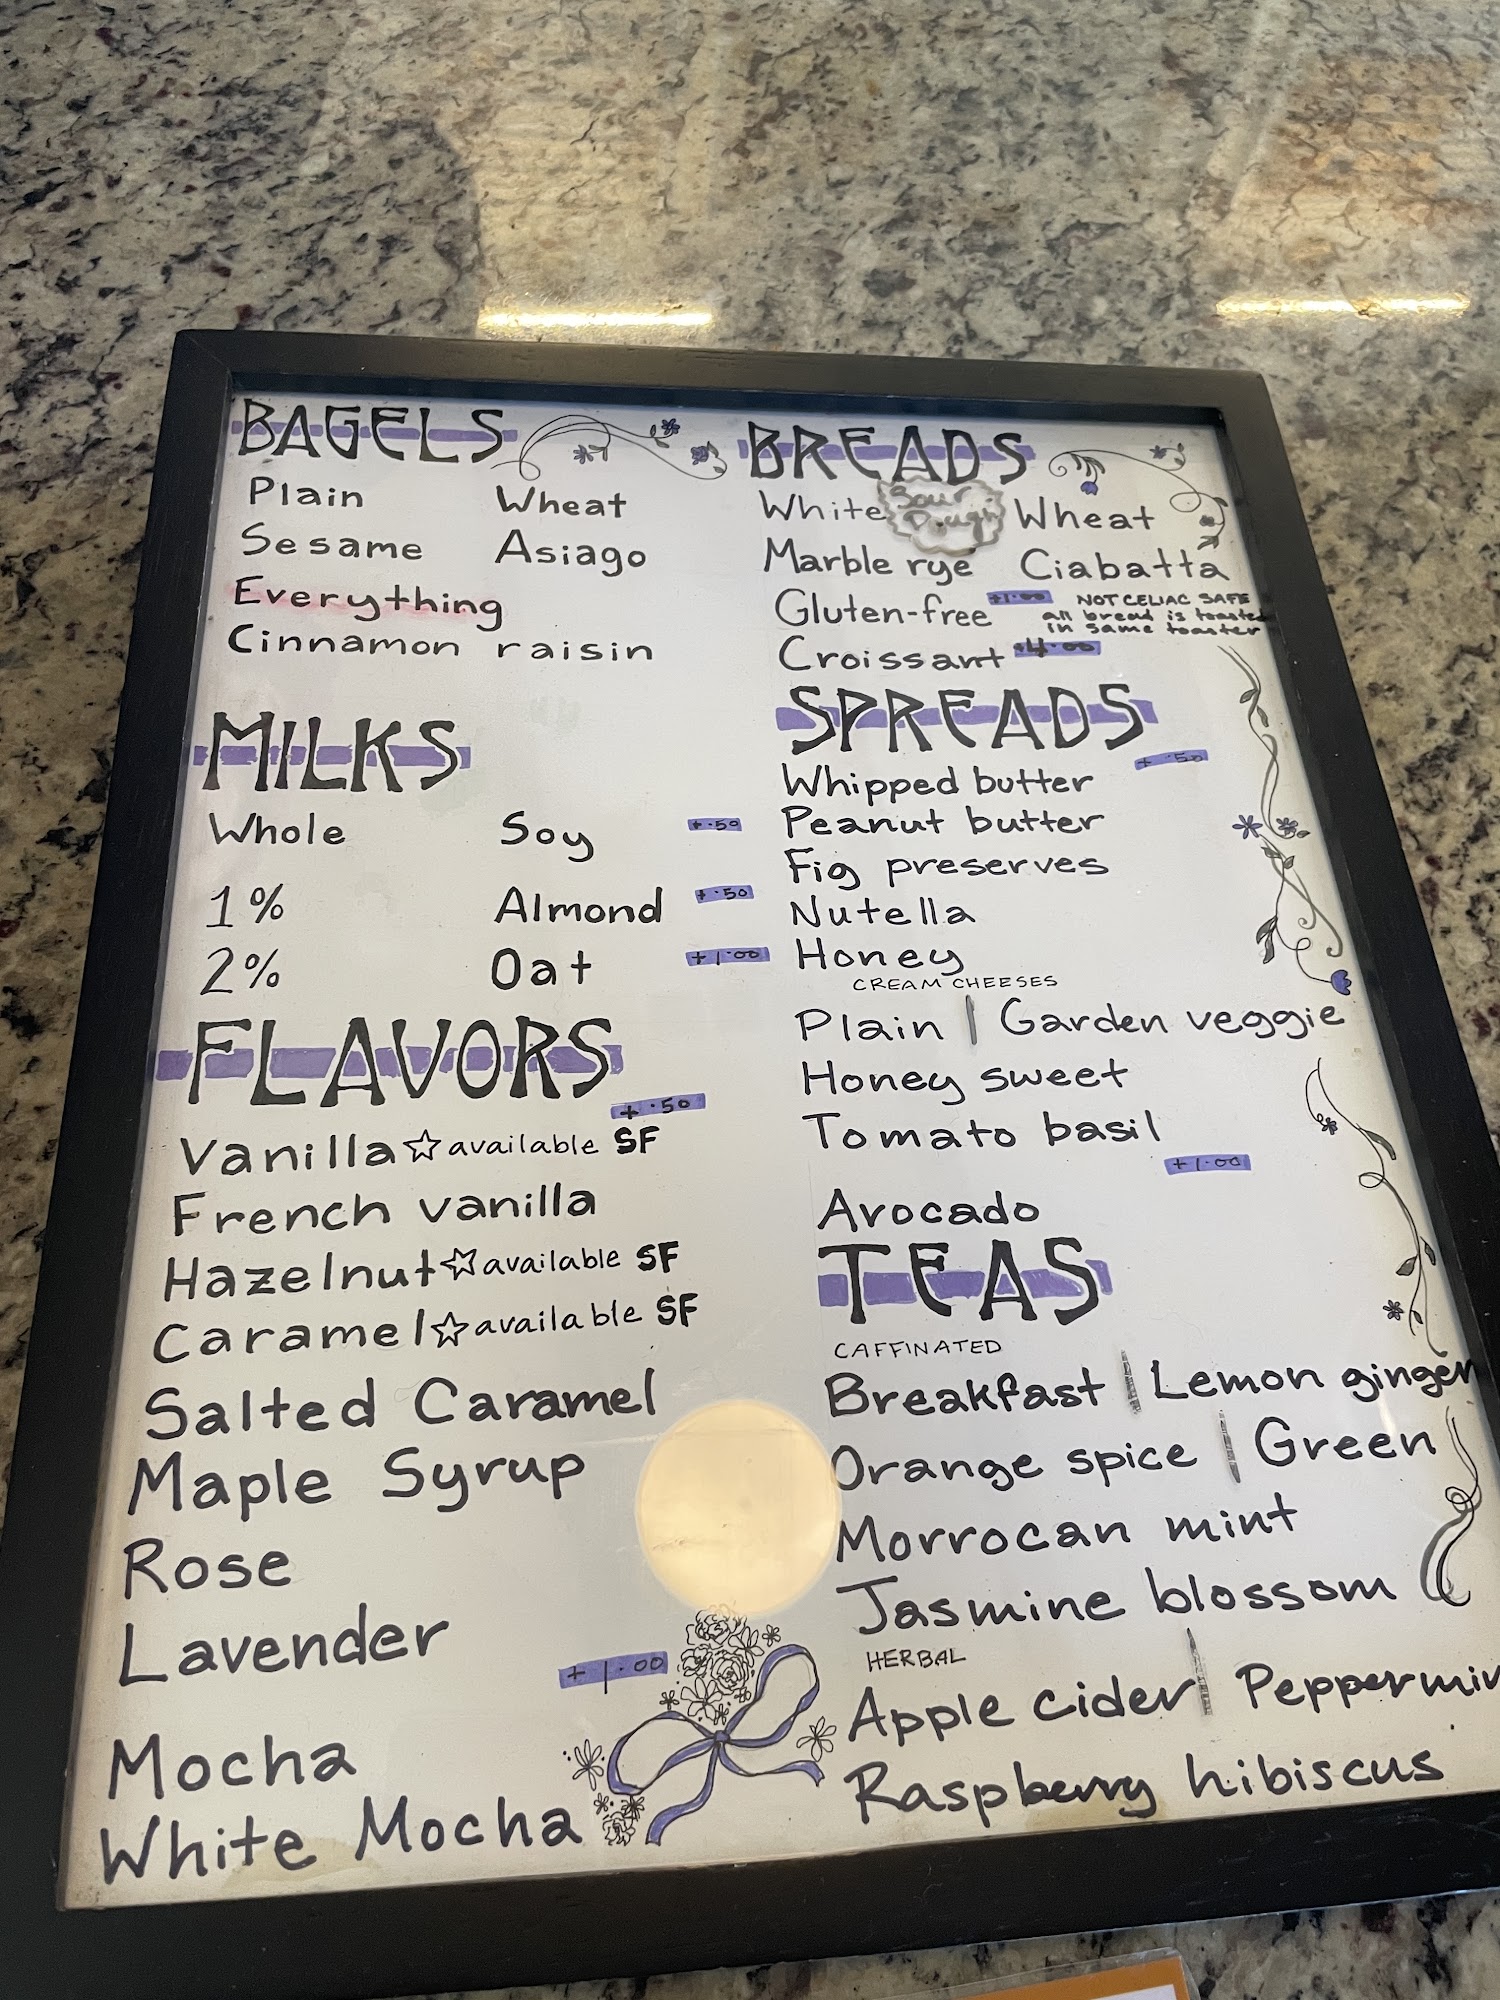 BAGELS
Plain Wheat
Sesame Asiago
Everything
Cinnamon raisin
MILKS
Whole Soy +.50
1% Almond +.50
2% Oat +1.00
FLAVORS
+.50
Vanilla☆available SF
French vanilla
Hazelnut☆available SF
Caramel☆available SF
Salted Caramel
Maple Syrup
Rose
Lavender
+1.00
Mocha
White Mocha
BREADS
White Sour Dough Wheat
Marble rye Ciabatta
Gluten-free +1.00 NOT CELIAC SAFE
all bread is toasted
in same toaster
Croissant +4.00
SPREADS
+.50
Whipped butter
Peanut butter
Fig preserves
Nutella
Honey
CREAM CHEESES
Plain | Garden veggie
Honey sweet
Tomato basil
+1.00
Avocado
TEAS
CAFFINATED
Breakfast | Lemon ginger
Orange spice | Green
Morrocan mint
Jasmine blossom
HERBAL
Apple cider | Peppermin
Raspberry hibiscus